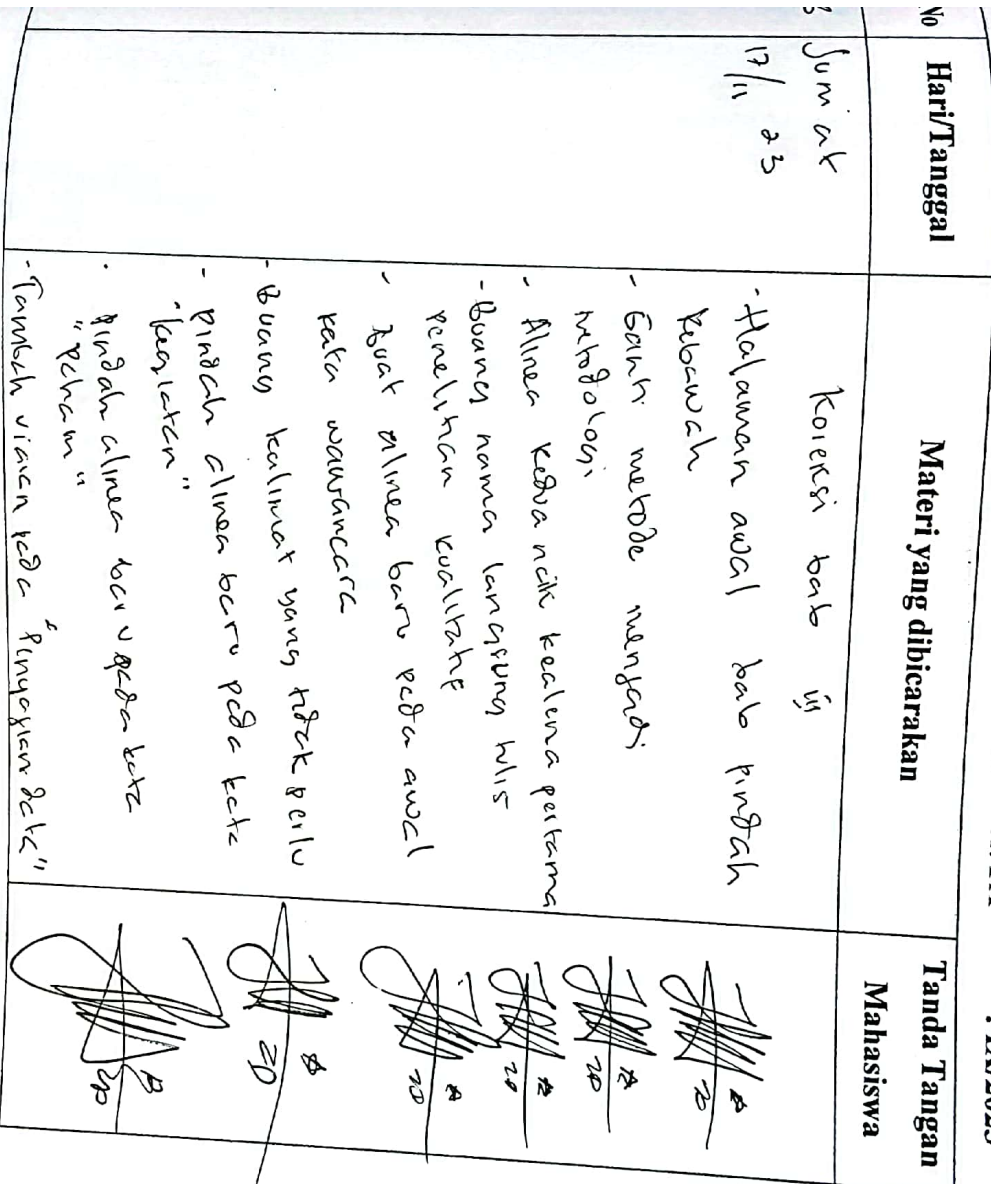 No
Hari/Tanggal
Materi yang dibicarakan
Tanda Tangan
Mahasiswa
Jum'at
17/11 23
Koreksi bab iii
- Halaman awal bab pindah
kebawah
- Ganti metode menjadi
metodologi
- Alinea kedua naik kealenia pertama
- Buang nama langsung tulis
penelitian kualitatif
- Buat alinea baru pada awal
kata wawancara
- Buang kalimat yang tidak perlu
- pindah alinea baru pada kata
"kegiatan"
- pindah alinea baru pada kata
"paham"
- Tambah uraian pada "Penyajian data"